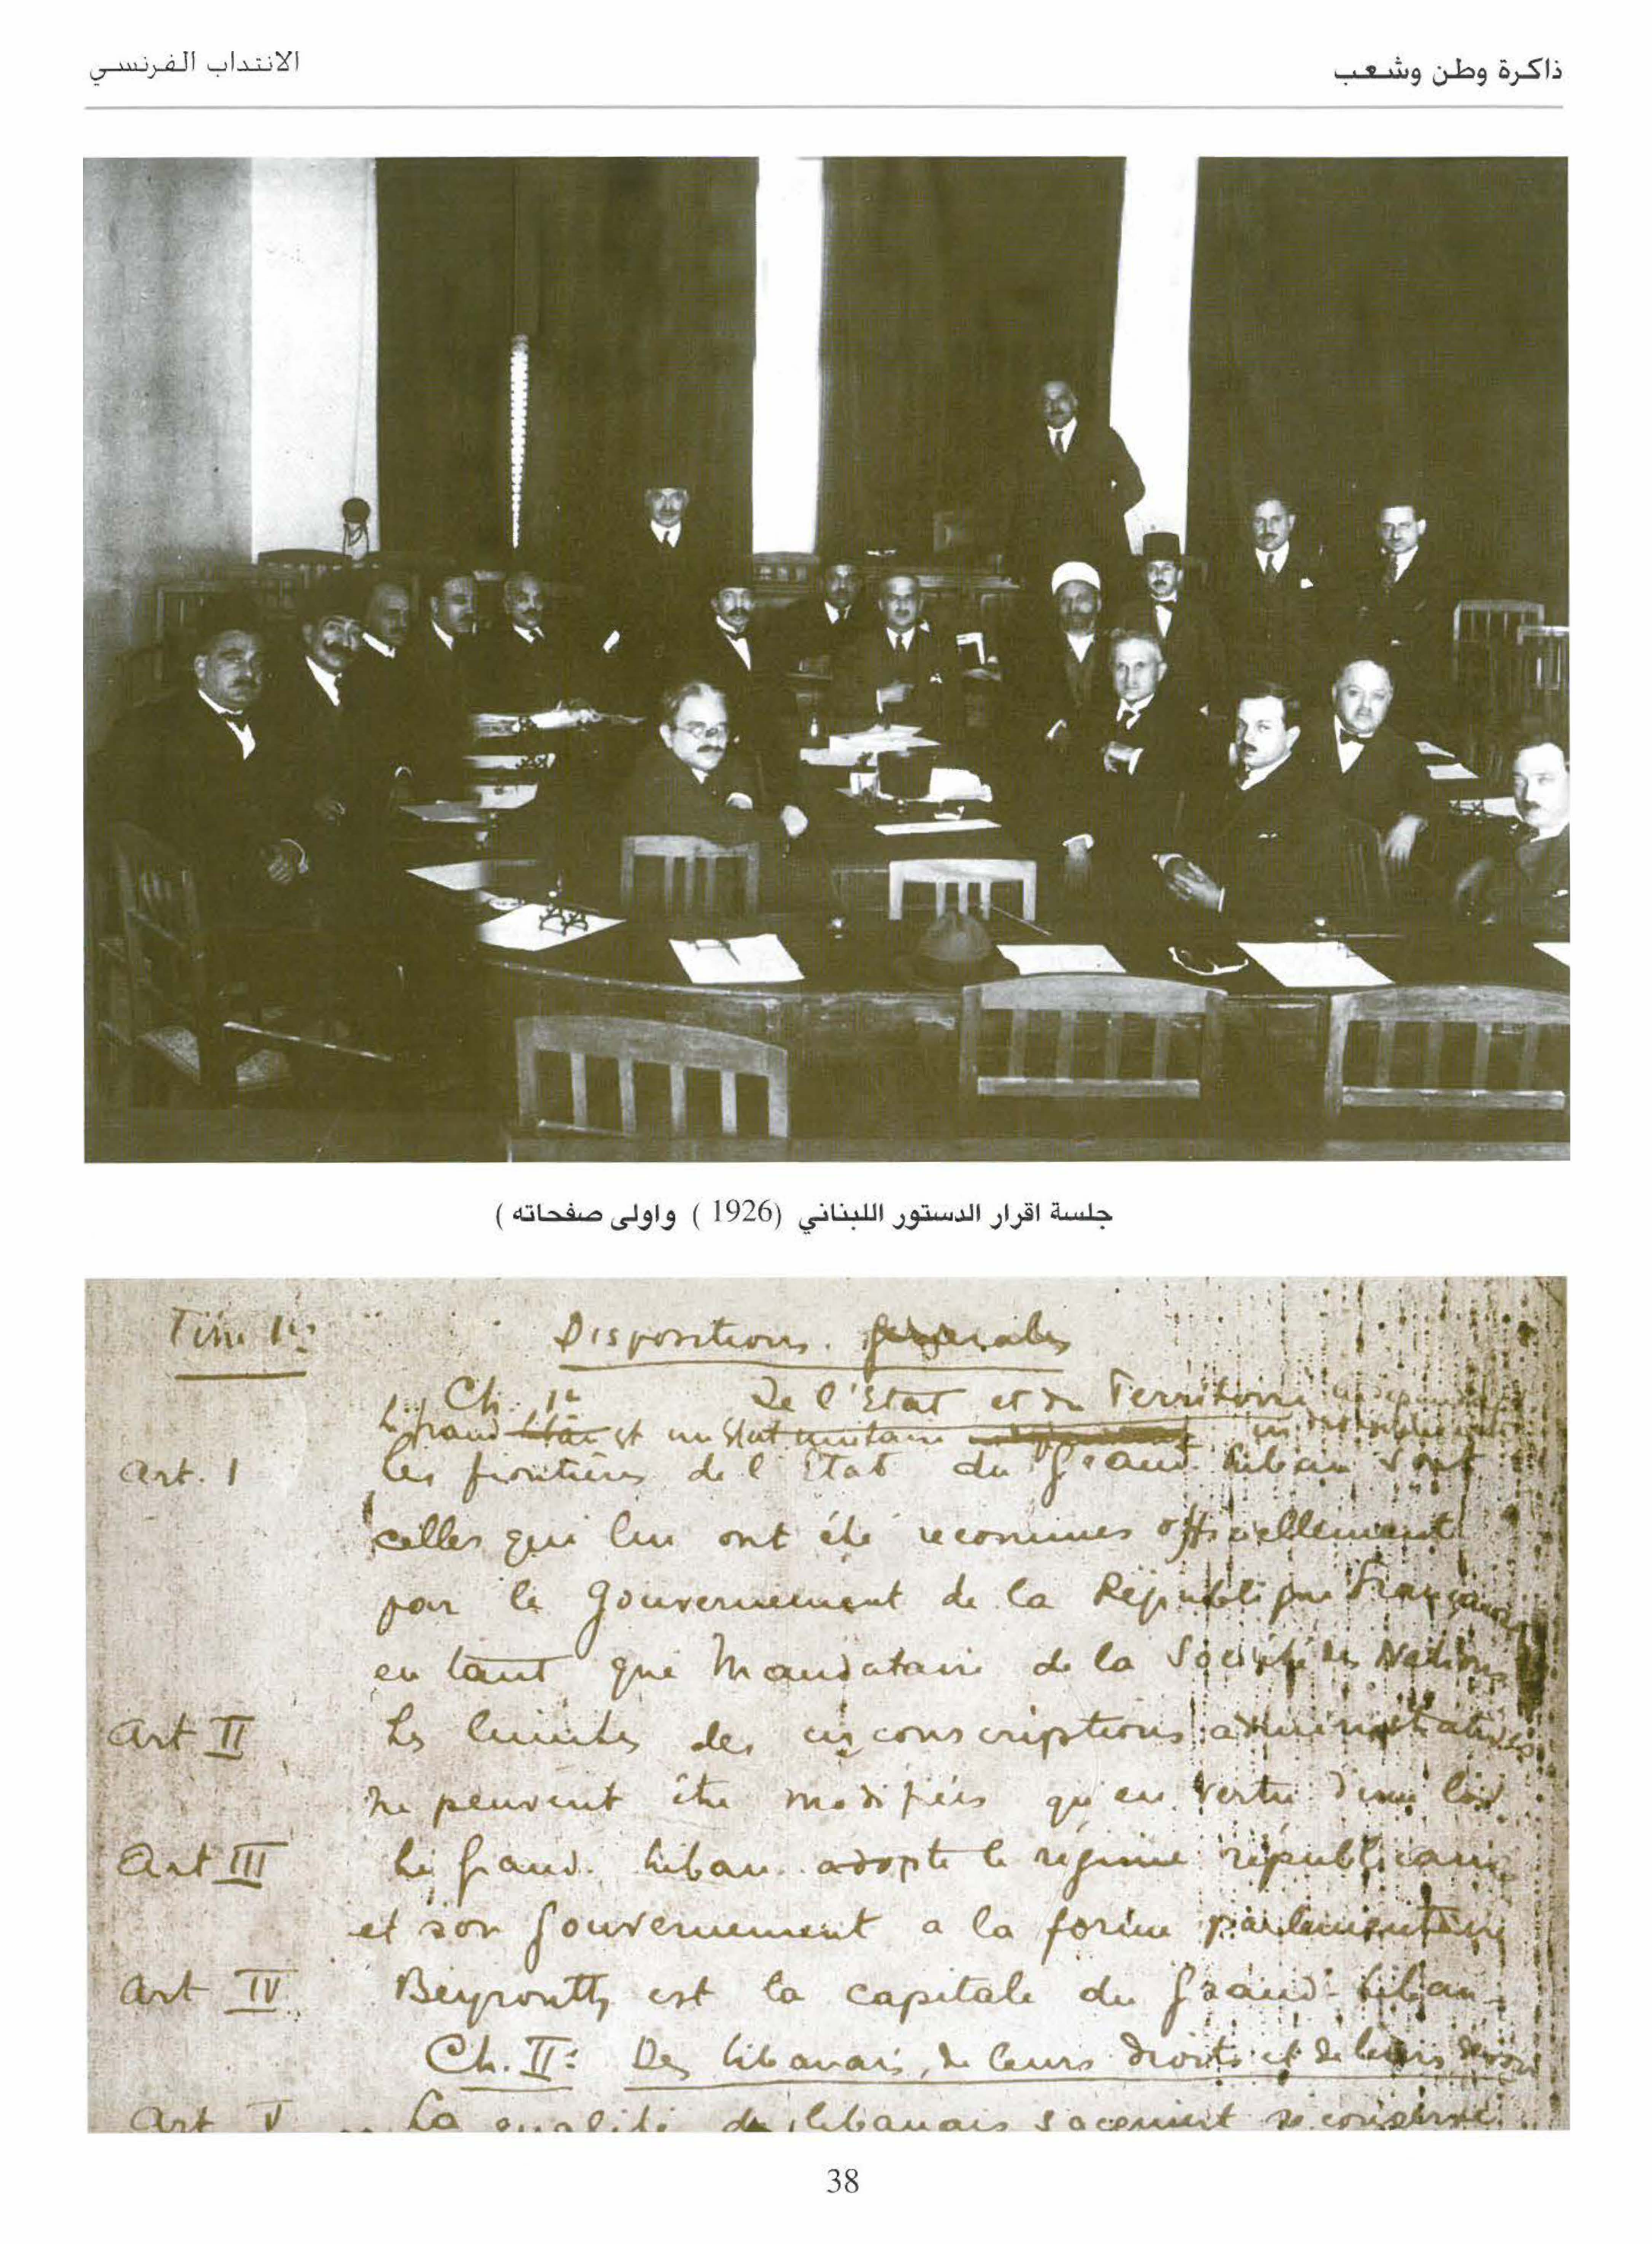 ذاكرة وطن وشعب
الانتداب الفرنسي
جلسة اقرار الدستور اللبناني (1926 ) واولى صفحاته )
Titre 1er
Dispositions générales
Ch. 1er De l'Etat et du Territoire
Le Grand Liban est un Etat unitaire
Art. 1 Les frontières de l'Etat du Grand Liban sont
celles qui lui ont été reconnues officiellement
par le Gouvernement de la République Française
en tant que Mandataire de la Société des Nations
Art II Les limites des circonscriptions administratives
ne peuvent être modifiées qu'en vertu d'une loi
Art III Le Grand Liban adopte le régime républicain
et son Gouvernement a la forme parlementaire
Art IV Beyrouth est la capitale du Grand-Liban
Ch. II: Des libanais, de leurs droits et de leurs devoirs
Art V La qualité de libanais s'acquiert se conserve
38